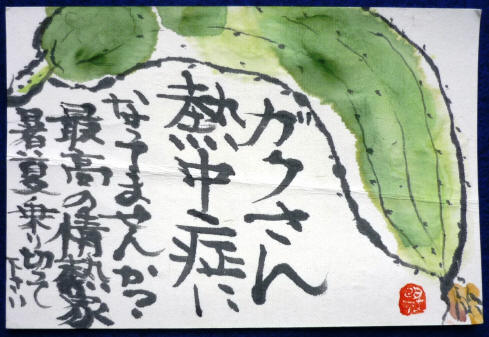 ガクさん
熱中症に
なってませんか?
最高の情熱家
暑い夏乗り切って
下さい